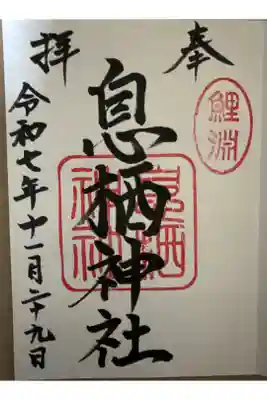 奉拝
鯉淵
息栖神社
息栖
神社
令和七年十一月二十九日